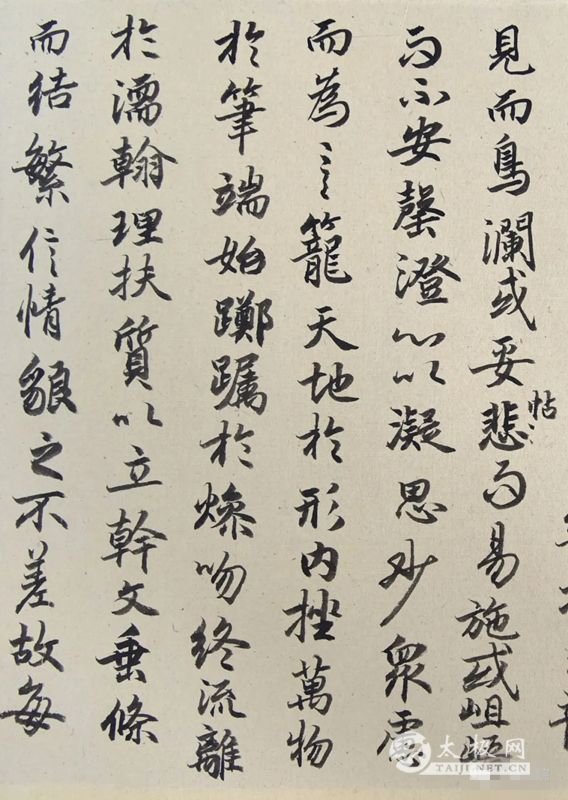 見而鳥瀾或妥悲怗而易施或岨峿
而不安罄澄心以凝思眇眾慮
而為言籠天地於形內挫萬物
於筆端始躑躅於燥吻終流離
於濡翰理扶質以立幹文垂條
而結繁信情貌之不差故每
太极网
TAIJI.NET.CN